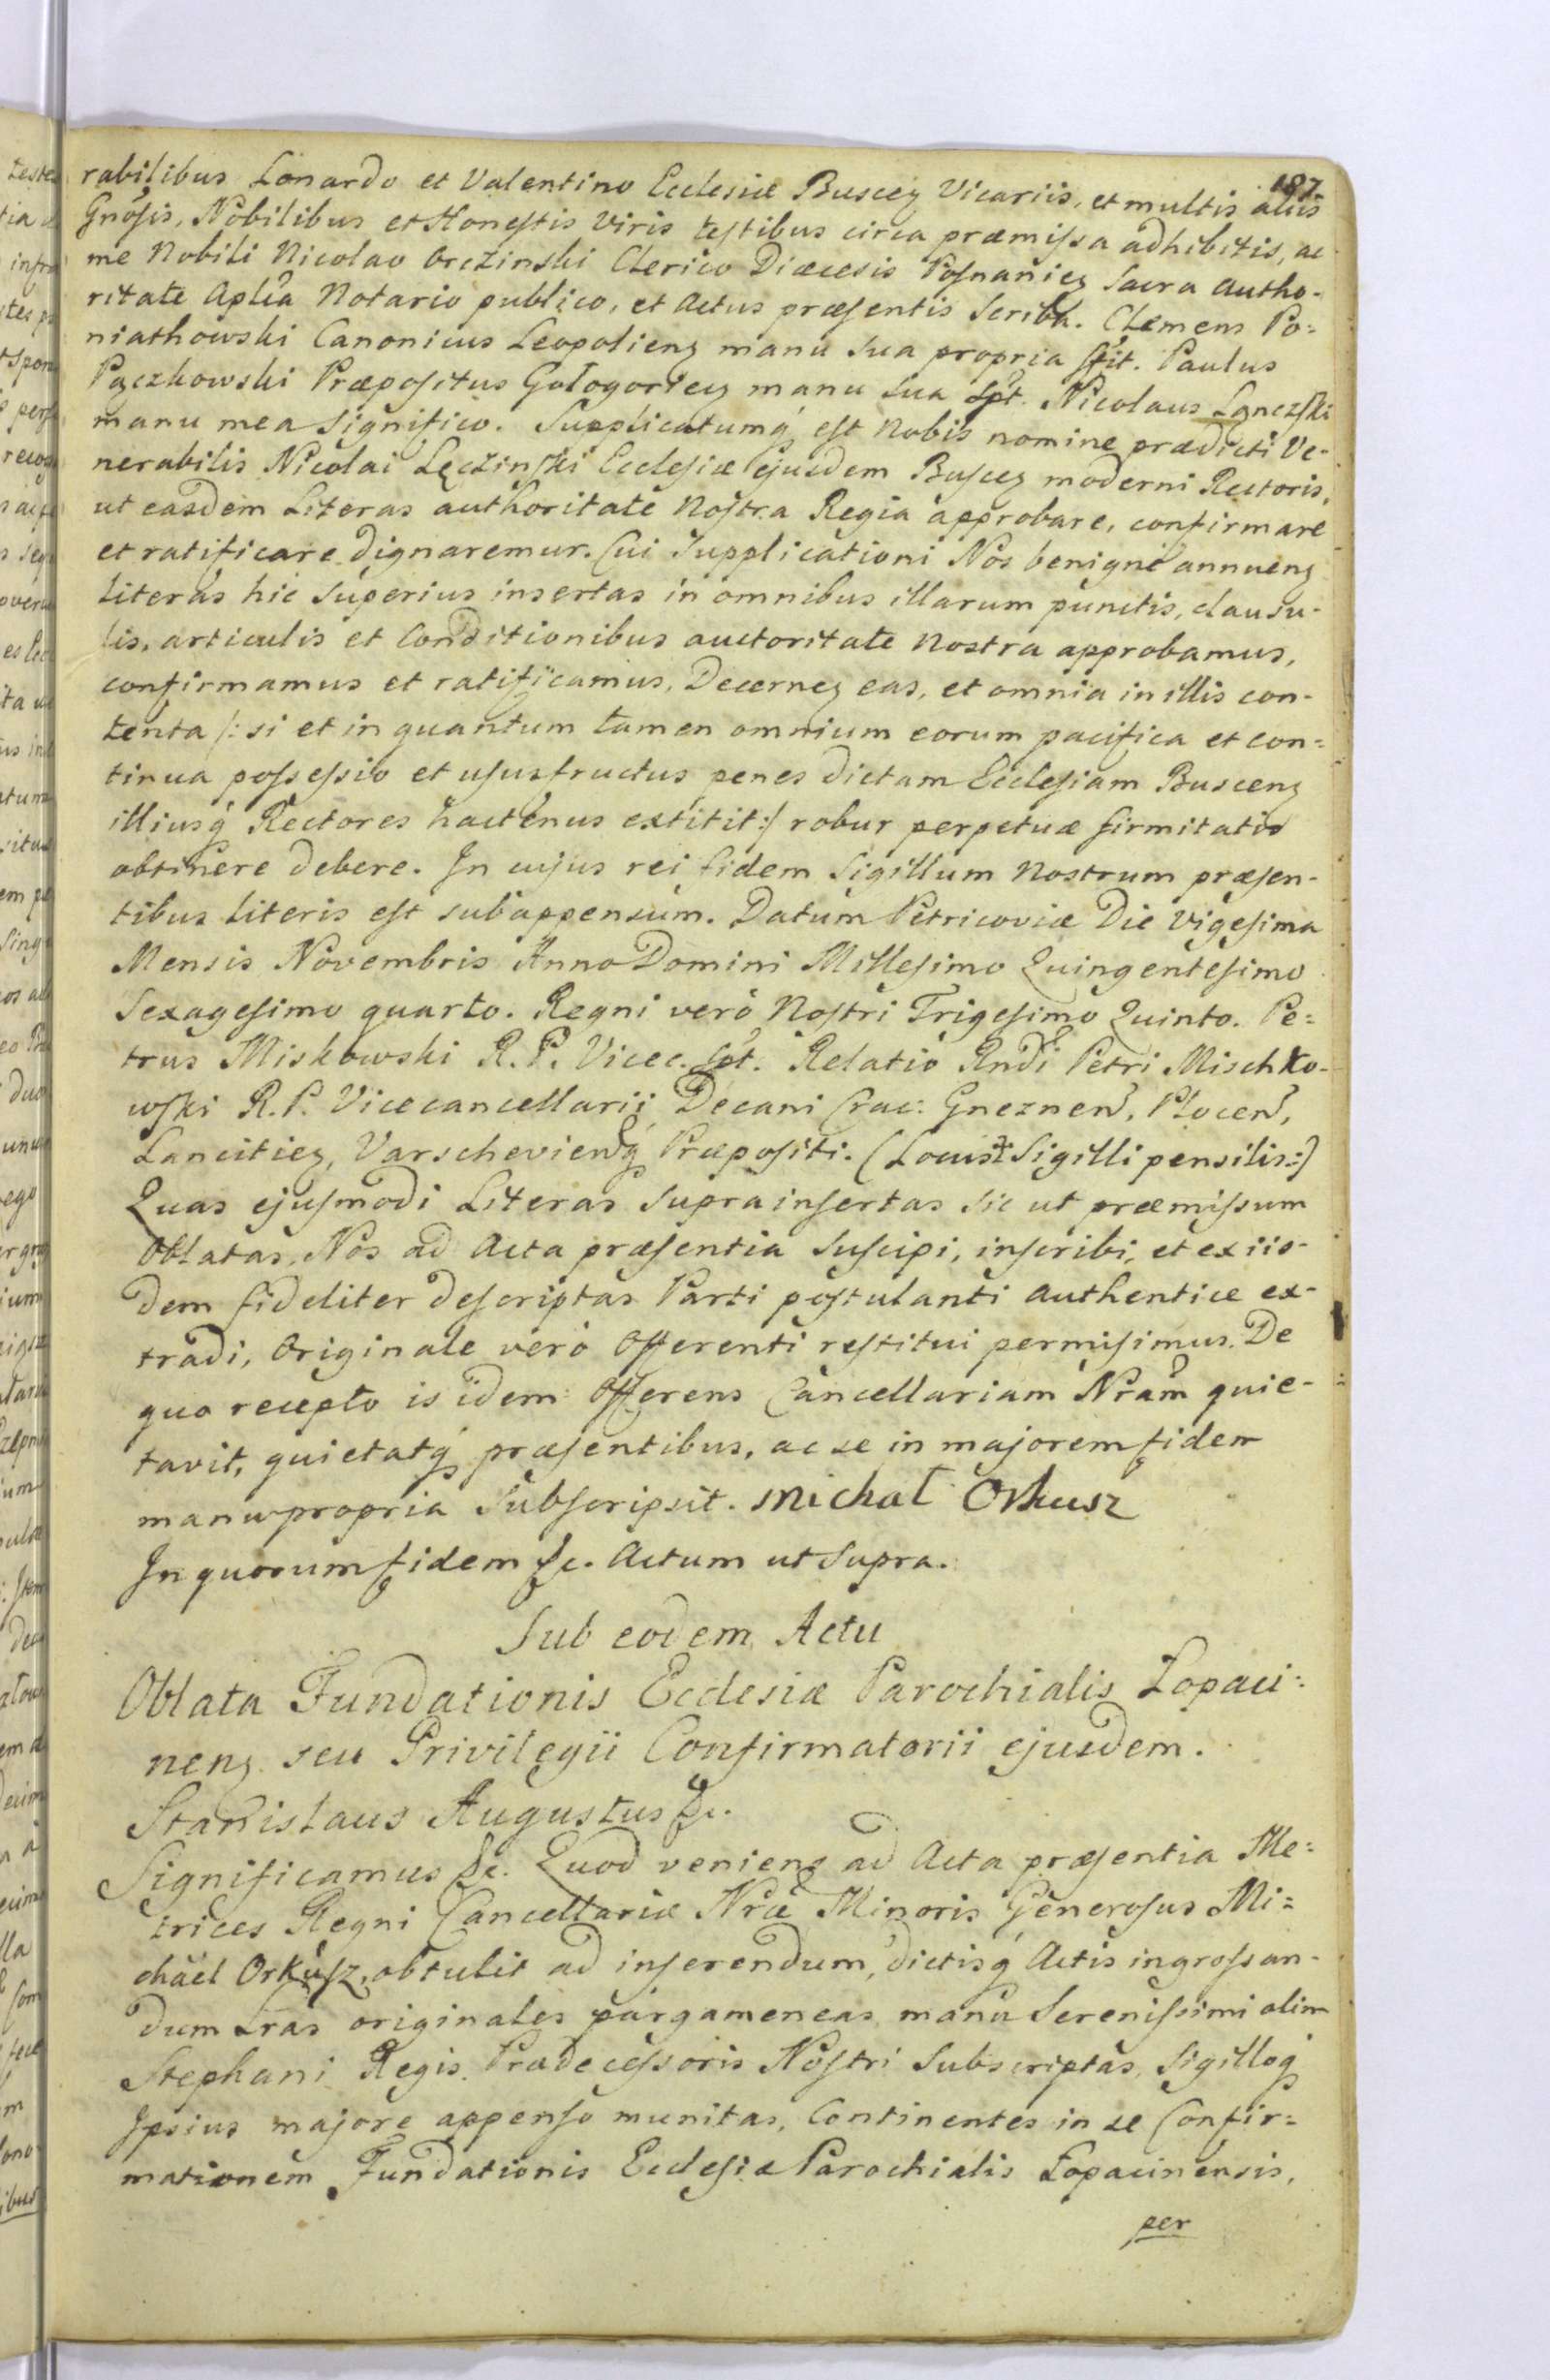 187.
rabilibus Lonardo et Valentino Ecclesiæ Buscen̄ Vicariis, et multis aliis
Gnosis, Nobilibus et Honestis Viris testibus circa præmissa adhibitis, ac
me Nobili Nicolao Orczinski Clerico Diæcesis Posnanien̄ Sacra Autho-
ritate Aplica Notario publico, et Actus præsentis Scriba. Clemens Po=
niathowski Canonicus Leopolien̄ manu sua propria sst. Paulus
Pączkowski Præpositus Gołogorien̄ manu sua spt. Nicolaus Łąnczski
manu mea significo. Supplicatumq́ est Nobis nomine prædicti Ve-
nerabilis Nicolai Lęczinski Ecclesiæ ejusdem Buscen̄ moderni Rectoris,
ut easdem Literas authoritate Nostra Regia approbare, confirmare
et ratificare dignaremur. Cui Supplicationi Nos benigne annuen̄
Literas hic superius insertas in omnibus illarum punctis, clausu-
lis, articulis et Conditionibus auctoritate Nostra approbamus,
confirmamus et ratificamus, Decernen̄ eas, et omnia in illis con-
tenta /: si et in quantum tamen omnium eorum pacifica et con=
tinua possessio et ususfructus penes dictam Ecclesiam Buscen̄
illiusq́ Rectores hactenus extitit :/ robur perpetuæ firmitatis
obtinere debere. In cujus rei fidem Sigillum Nostrum præsen-
tibus literis est subappensum. Datum Petricoviæ Die Vigesima
Mensis Novembris Anno Domini Millesimo Quingentesimo
Sexagesimo quarto. Regni verò Nostri Trigesimo Quinto. Pe=
trus Miskowski R. P. Vicec. spt. Relatio Rndi Petri Mischko-
wski R. P. Vicecancellarii, Decani Crac: Gneznen̄, Plocen̄,
Lancitien̄, Varschevien̄q́ Præpositi. (Locus Sigilli pensilis:)
Quas ejusmodi Literas supra insertas sic ut præmissum
Oblatas, Nos ad Acta præsentia suscipi, inscribi, et ex iis-
dem fideliter descriptas Parti postulanti Authentice ex-
tradi, Originale verò Offerenti restitui permisimus. De
quo recepto is idem Offerens Cancellariam Nram quie-
tavit, quietatq́ præsentibus, ac se in majorem fidem
manu propria Subscripsit. Michał Orkusz
In quorum fidem &c. Actum ut supra.
Sub eodem Actu
Oblata Fundationis Ecclesiæ Parochialis Łopaci=
nen̄ seu Privilegii Confirmatorii ejusdem.
Stanislaus Augustus &c.
Significamus &c. Quod veniens ad Acta præsentia Me=
trices Regni Cancellariæ Nræ Minoris Generosus Mi=
chael Orkusz, obtulit ad inserendum, dictisq́ Actis ingrossan-
dum Lras originales pargameneas, manu Serenissimi olim
Stephani Regis Prædecessoris Nostri Subscriptas, Sigilloq́
Ipsius majore appenso munitas, Continentes in se Confir=
mationem Fundationis Ecclesiæ Parochialis Łopacinensis,
per